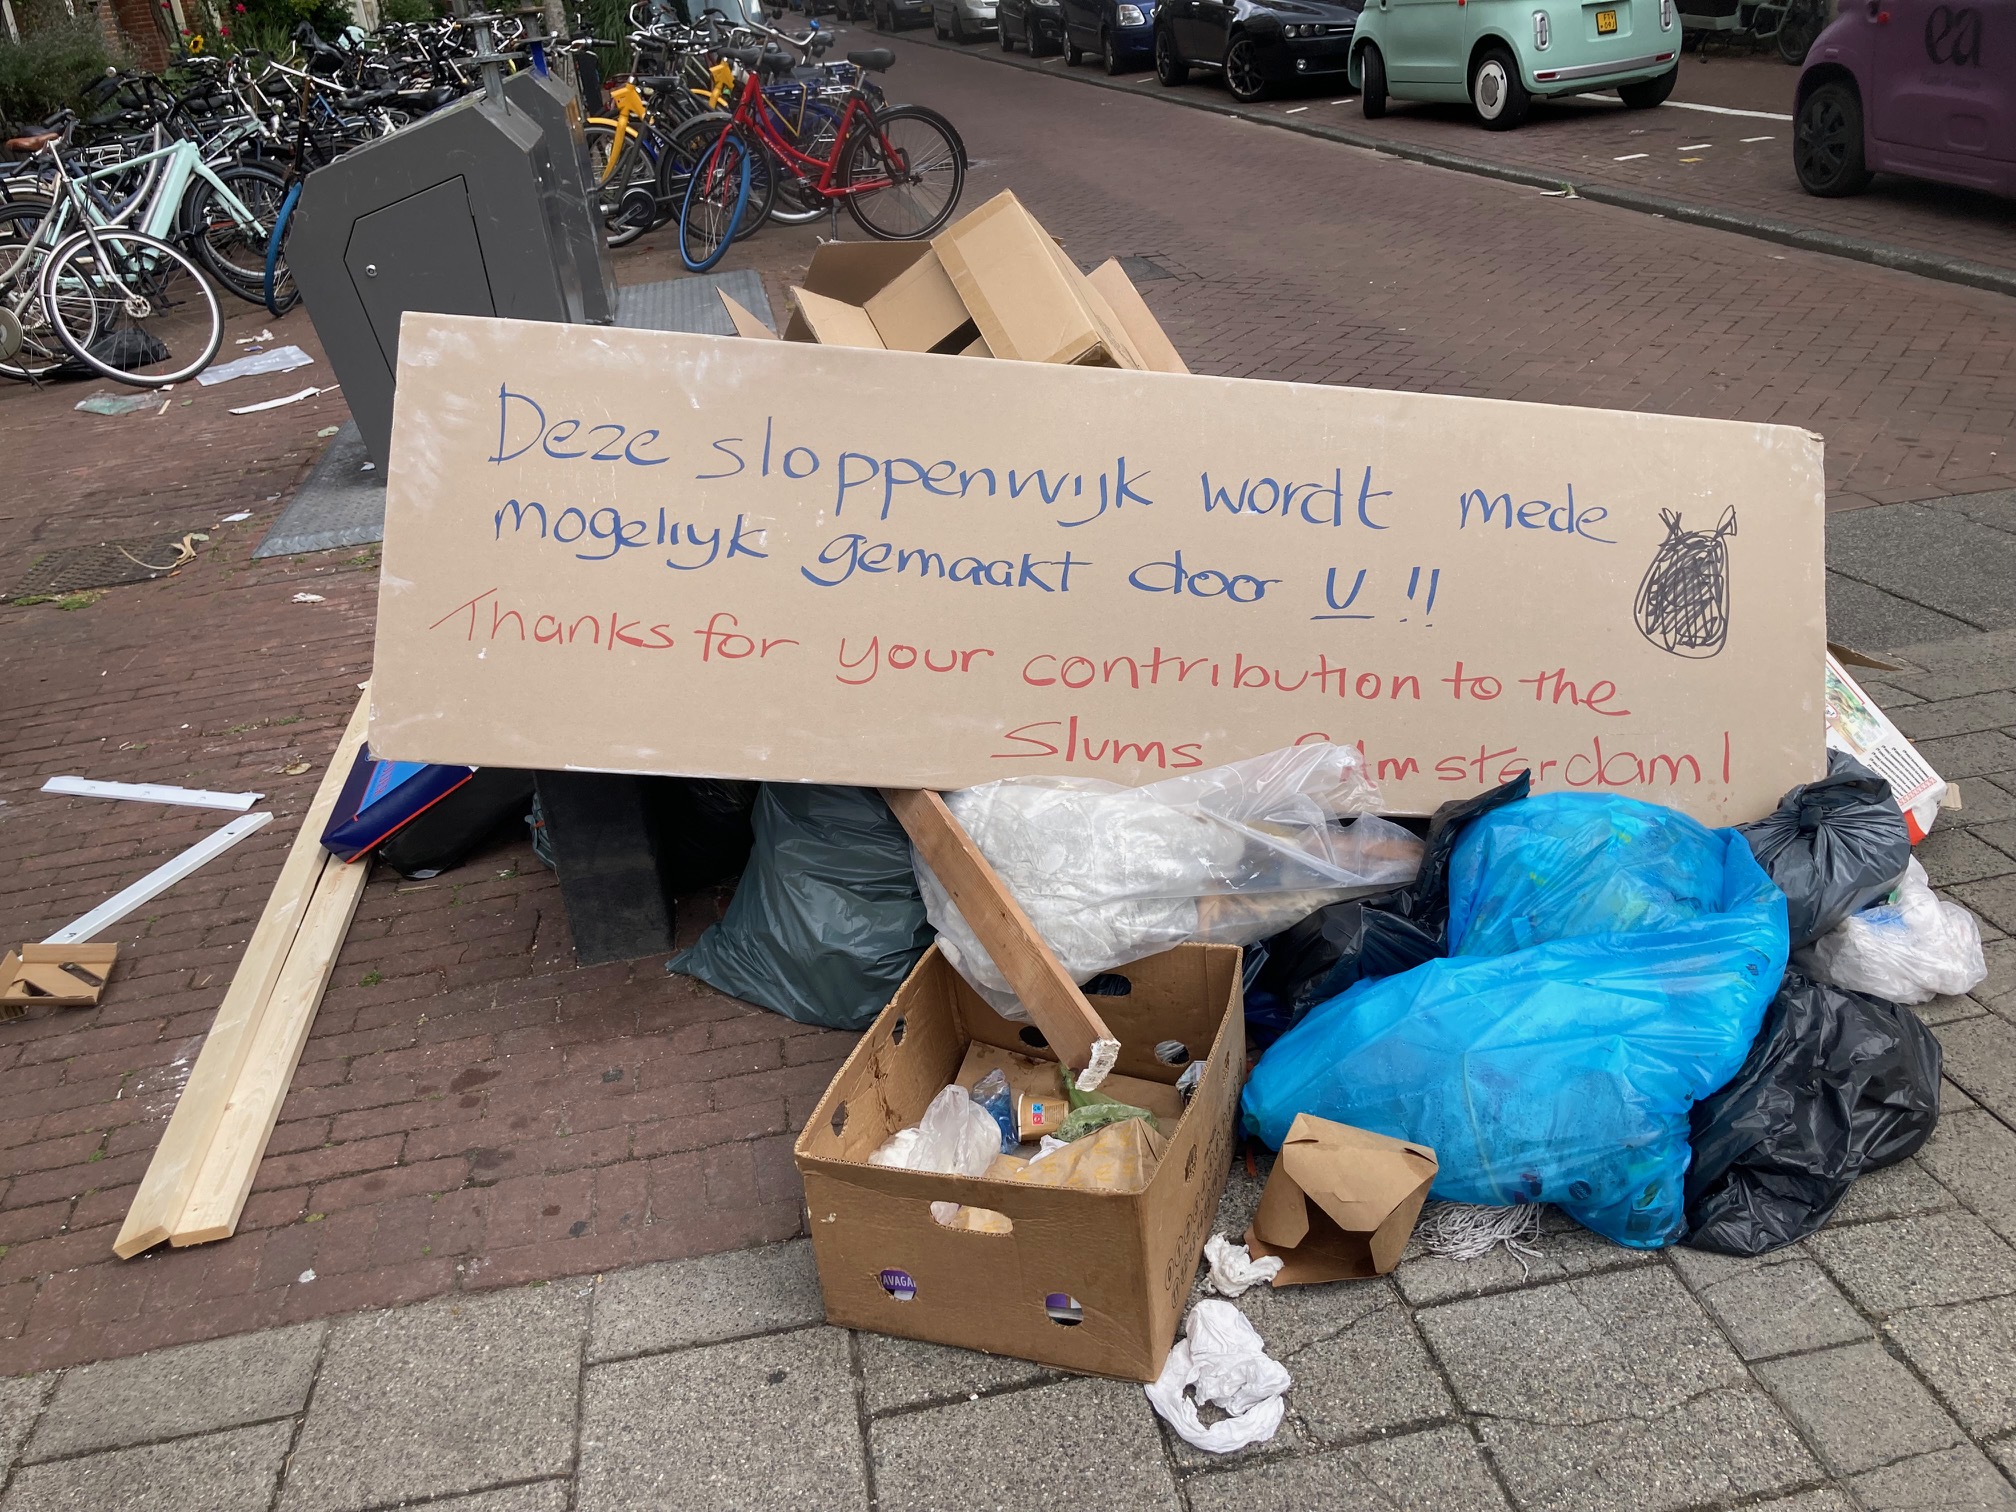 Deze sloppenwijk wordt mede
mogelijk gemaakt door U !!
Thanks for your contribution to the
Slums Amsterdam!
ea
AVAGA